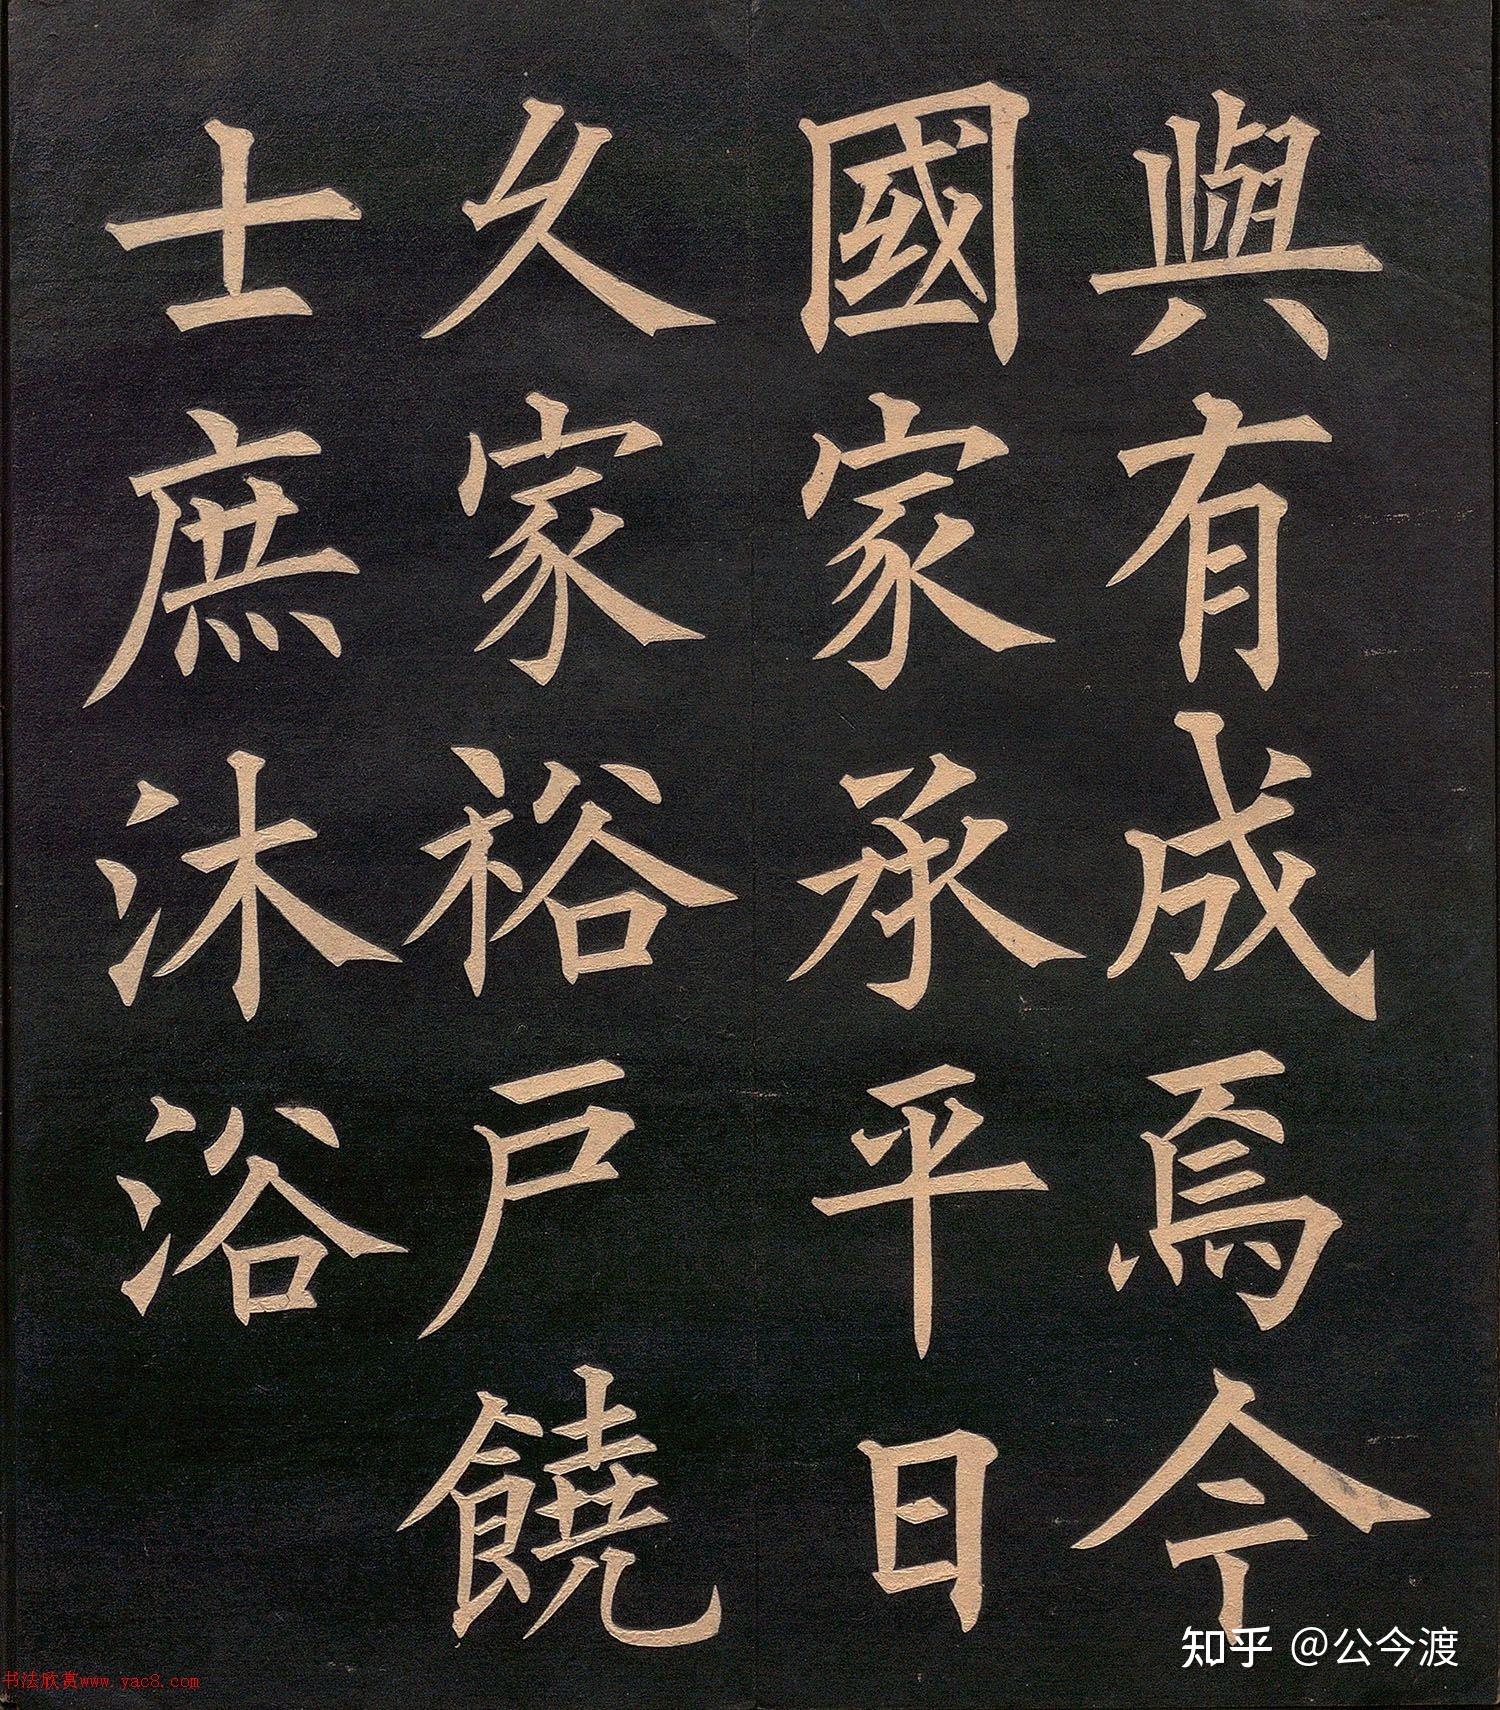 與有成焉今
國家承平日
久家裕戶饒
士庶沐浴
知乎 @公今渡
书法欣赏www.yac8.com